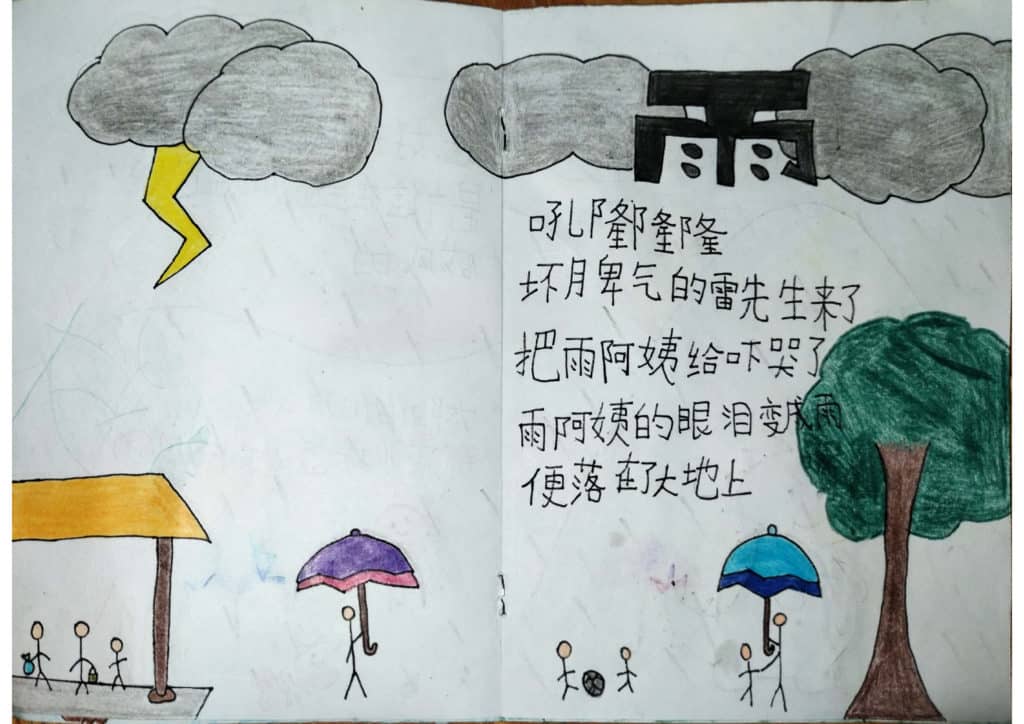 雨
吼隆隆隆
坏脾气的雷先生来了
把雨阿姨给吓哭了
雨阿姨的眼泪变成雨
便落在了大地上